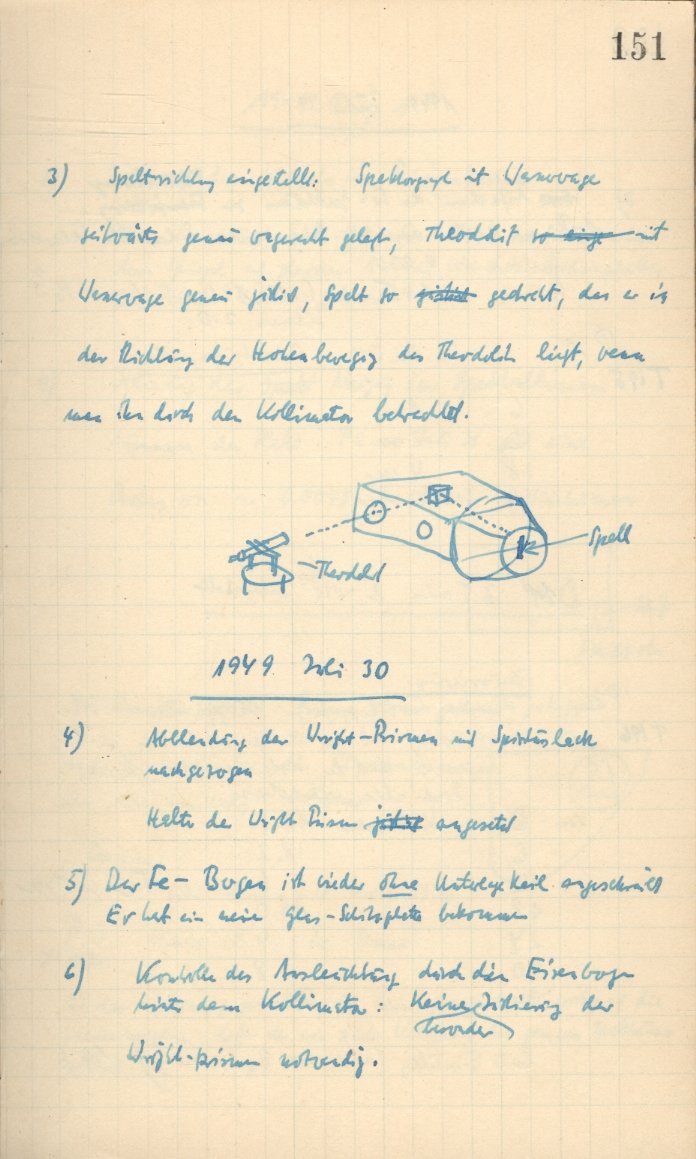 151
3) Spaltrichtung eingestellt: Spektrograph mit Wasserwage
seitwärts genau wagerecht gelegt, Theodolit so einge mit
Wasserwage genau justiert, Spalt so justiert gedreht, das er in
der Richtung der Höhenbewegung des Theodolits liegt, wenn
man ihn durch den Kollimator betrachtet.
Spalt
Theodolit
1949 Juli 30
4) Abblendung der Wright-Prismen mit Spirituslack
nachgezogen
Halter der Wright Prismen justiert angesetzt
5) Der Fe-Bogen ist wieder ohne Unterlage Keil angeschraubt
Er hat ein neue Glas-Schutzplatte bekommen
6) Kontrolle der Ausleuchtung durch den Eisenbogen
hinter dem Kollimator: Keine Justierung der
Wright-prismen notwendig.